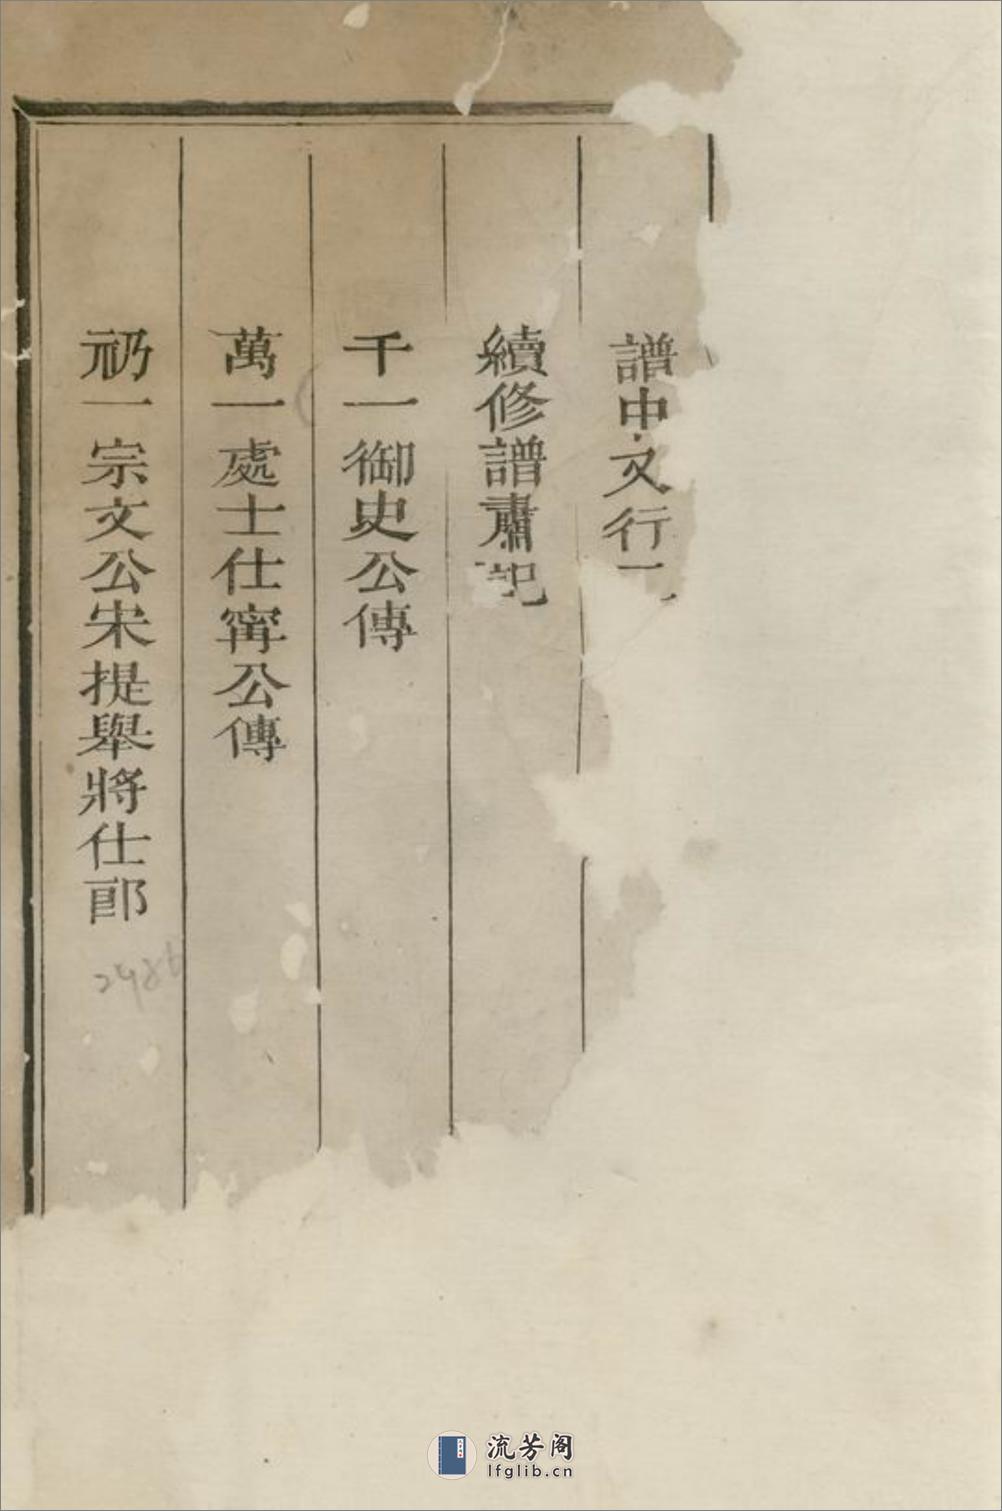 譜中文行
續修譜肅記
千一御史公傳
萬一處士仕甯公傳
礽一宗文公宋提舉將仕郎
流芳阁
lfglib.cn